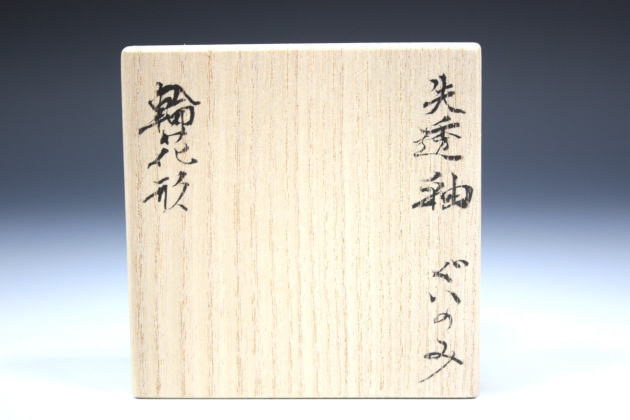 失透釉 ぐいのみ
輪花形